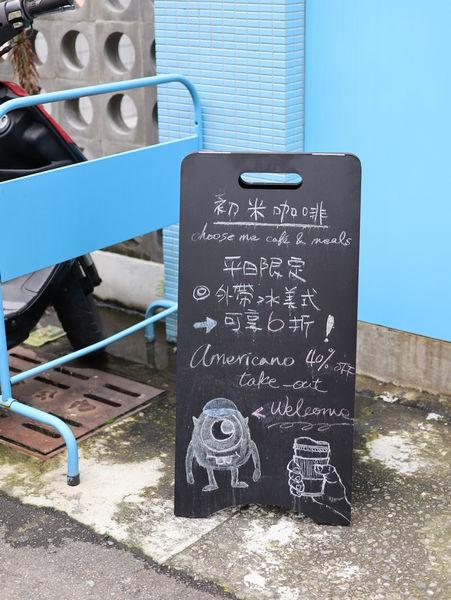 初米咖啡
choose me café & meals
平日限定
◎ 外帶冰美式
→ 可享6折!
Americano 40% OFF
take_out
← Welcome